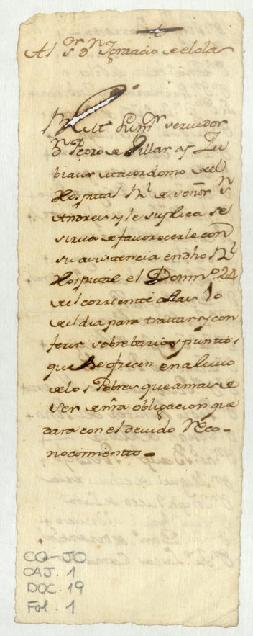 Al Sr Dn Ignacio de
su mas servidor
Dn Pedro de Villar
Mayordomo del
Hospital Rl de señor Sn
Andres y le suplica se
sirva de favorecerle con
su asistencia en dho Rl
Hospital el Domo 24
del corriente a las 10
del dia para tratar y con
ferir sobre barios puntos
que se ofrecen en alivio
de los Pobres que a mas de
ser de mi obligacion que
dara con el devido Reco-
nocimiento
CO-JO
CAJ. 1
DOC. 19
Fol. 1